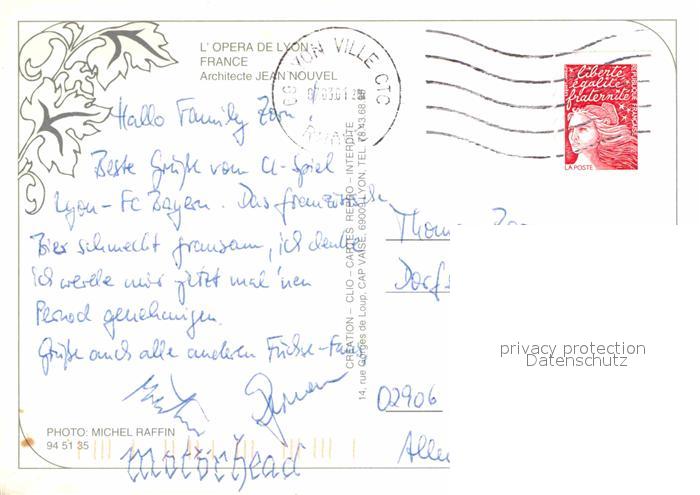 L' OPERA DE LYON
FRANCE
Architecte JEAN NOUVEL
LYON VILLE CTC
RHONE
liberté
égalité
fraternité
RÉPUBLIQUE FRANÇAISE
LA POSTE
Hallo Family Zorn!
Beste Grüße vom CL-Spiel
Lyon - FC Bayern. Das französische
Bier schmeckt grausam, ich denke
ich werde mir jetzt mal 'nen
Pernod genehmigen.
Grüße auch alle anderen Füchse-Fans
motörhead
Thom
Dorfs
02906
Aller
CREATION - CLIO - CARTES RETRO - INTERDITE
14, rue Georges de Loup, CAP VAISE, 69009 LYON, TEL. 78.43.68.
PHOTO: MICHEL RAFFIN
94 51 35
privacy protection
Datenschutz